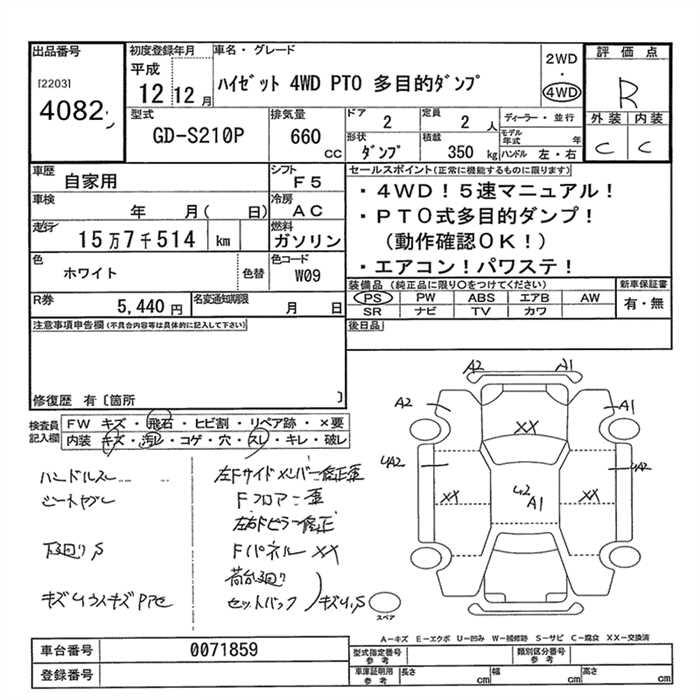 出品番号
[2203]
4082
初度登録年月
平成
12年12月
車名・グレード
ハイゼット 4WD PTO 多目的ダンプ
2WD
・
4WD
評価点
R
外装 内装
C C
型式
GD-S210P
排気量
660
cc
ドア
2
定員
2 人
形状
ダンプ
積載
350 kg
ディーラー・並行
モデル年式 年
ハンドル 左・右
車歴
自家用
シフト
F5
車検
年 月( 日)
冷房
AC
走行
15万7千514 km
燃料
ガソリン
色
ホワイト
色替
色コード
W09
R券
5,440 円
名変通知期限
月 日
セールスポイント(正常に機能するものに限ります)
・4WD!5速マニュアル!
・PTO式多目的ダンプ!
(動作確認OK!)
・エアコン!パワステ!
装備品 (純正品に限り○をつけてください)
PS PW ABS エアB AW
SR ナビ TV カワ
新車保証書
有・無
後日品
注意事項申告欄(不具合内容等は具体的に記入して下さい)
修復歴 有〔箇所 〕
検査員記入欄
FW キズ・飛石・ヒビ割・リペア跡・×要
内装・キズ・汚レ・コゲ・穴・スレ・キレ・破レ
ハンドルスレ
シートヤブレ
下回りS
左Fサイドメンバー修正歪
Fフロアー歪
左右Fピラー修正
Fパネル XX
荷台回り
セットバック
A2 A1
A2 A1
XX
4A2 4A2
XX XX
42
A1
スペア
A-キズ E-エクボ U-凹み W-補修跡 S-サビ C-腐食 XX-交換済
車台番号
0071859
登録番号
型式指定番号
参考
類別区分番号
参考
車庫証明用
参考
長さ cm
幅 cm
高さ cm